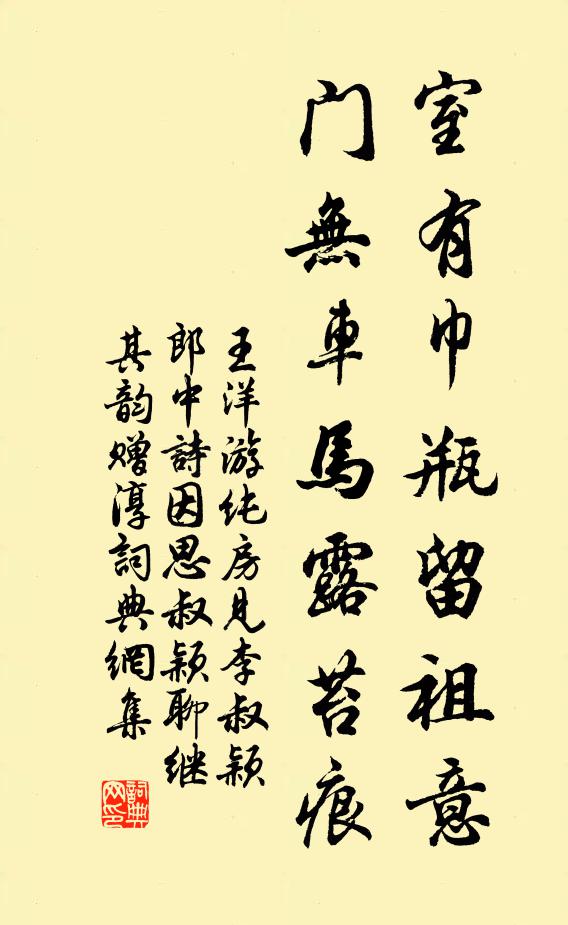 室有巾瓶留祖意
門無車馬露苔痕
王洋游纯房見李叔颖
郎中詩因思叔颖聊继
其韵赠淳詞典網集
詞典
网印